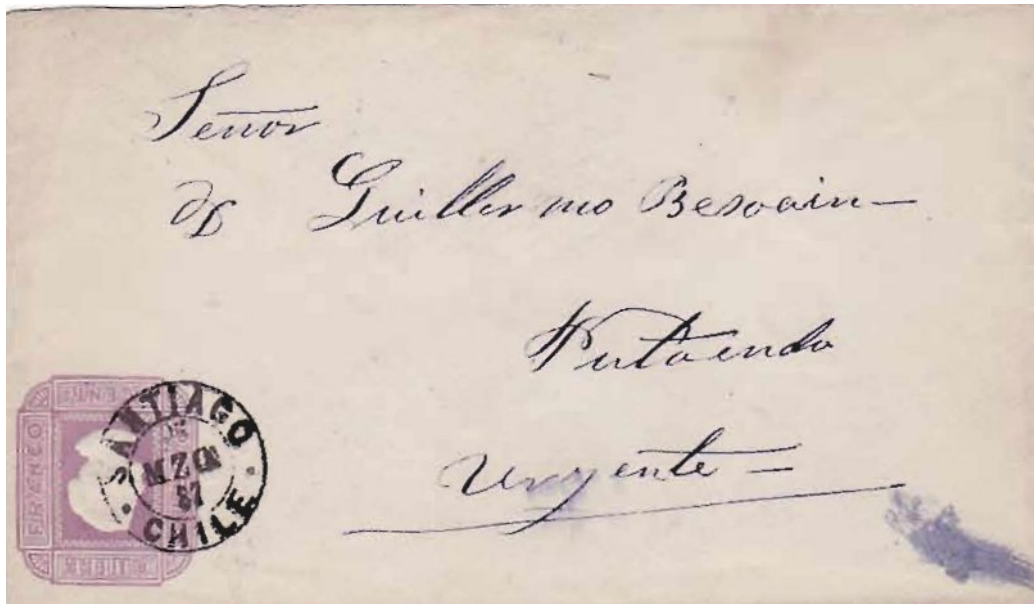 Señor
Dn Guillermo Besoain—
Putaendo
Urgente =
SANTIAGO
MZO
87
CHILE
FRANCO